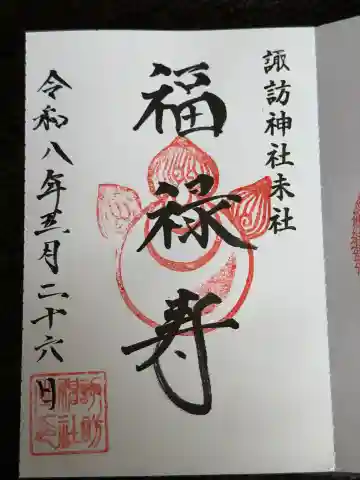 諏訪神社末社
福禄寿
令和八年五月二十六日
諏訪
神社